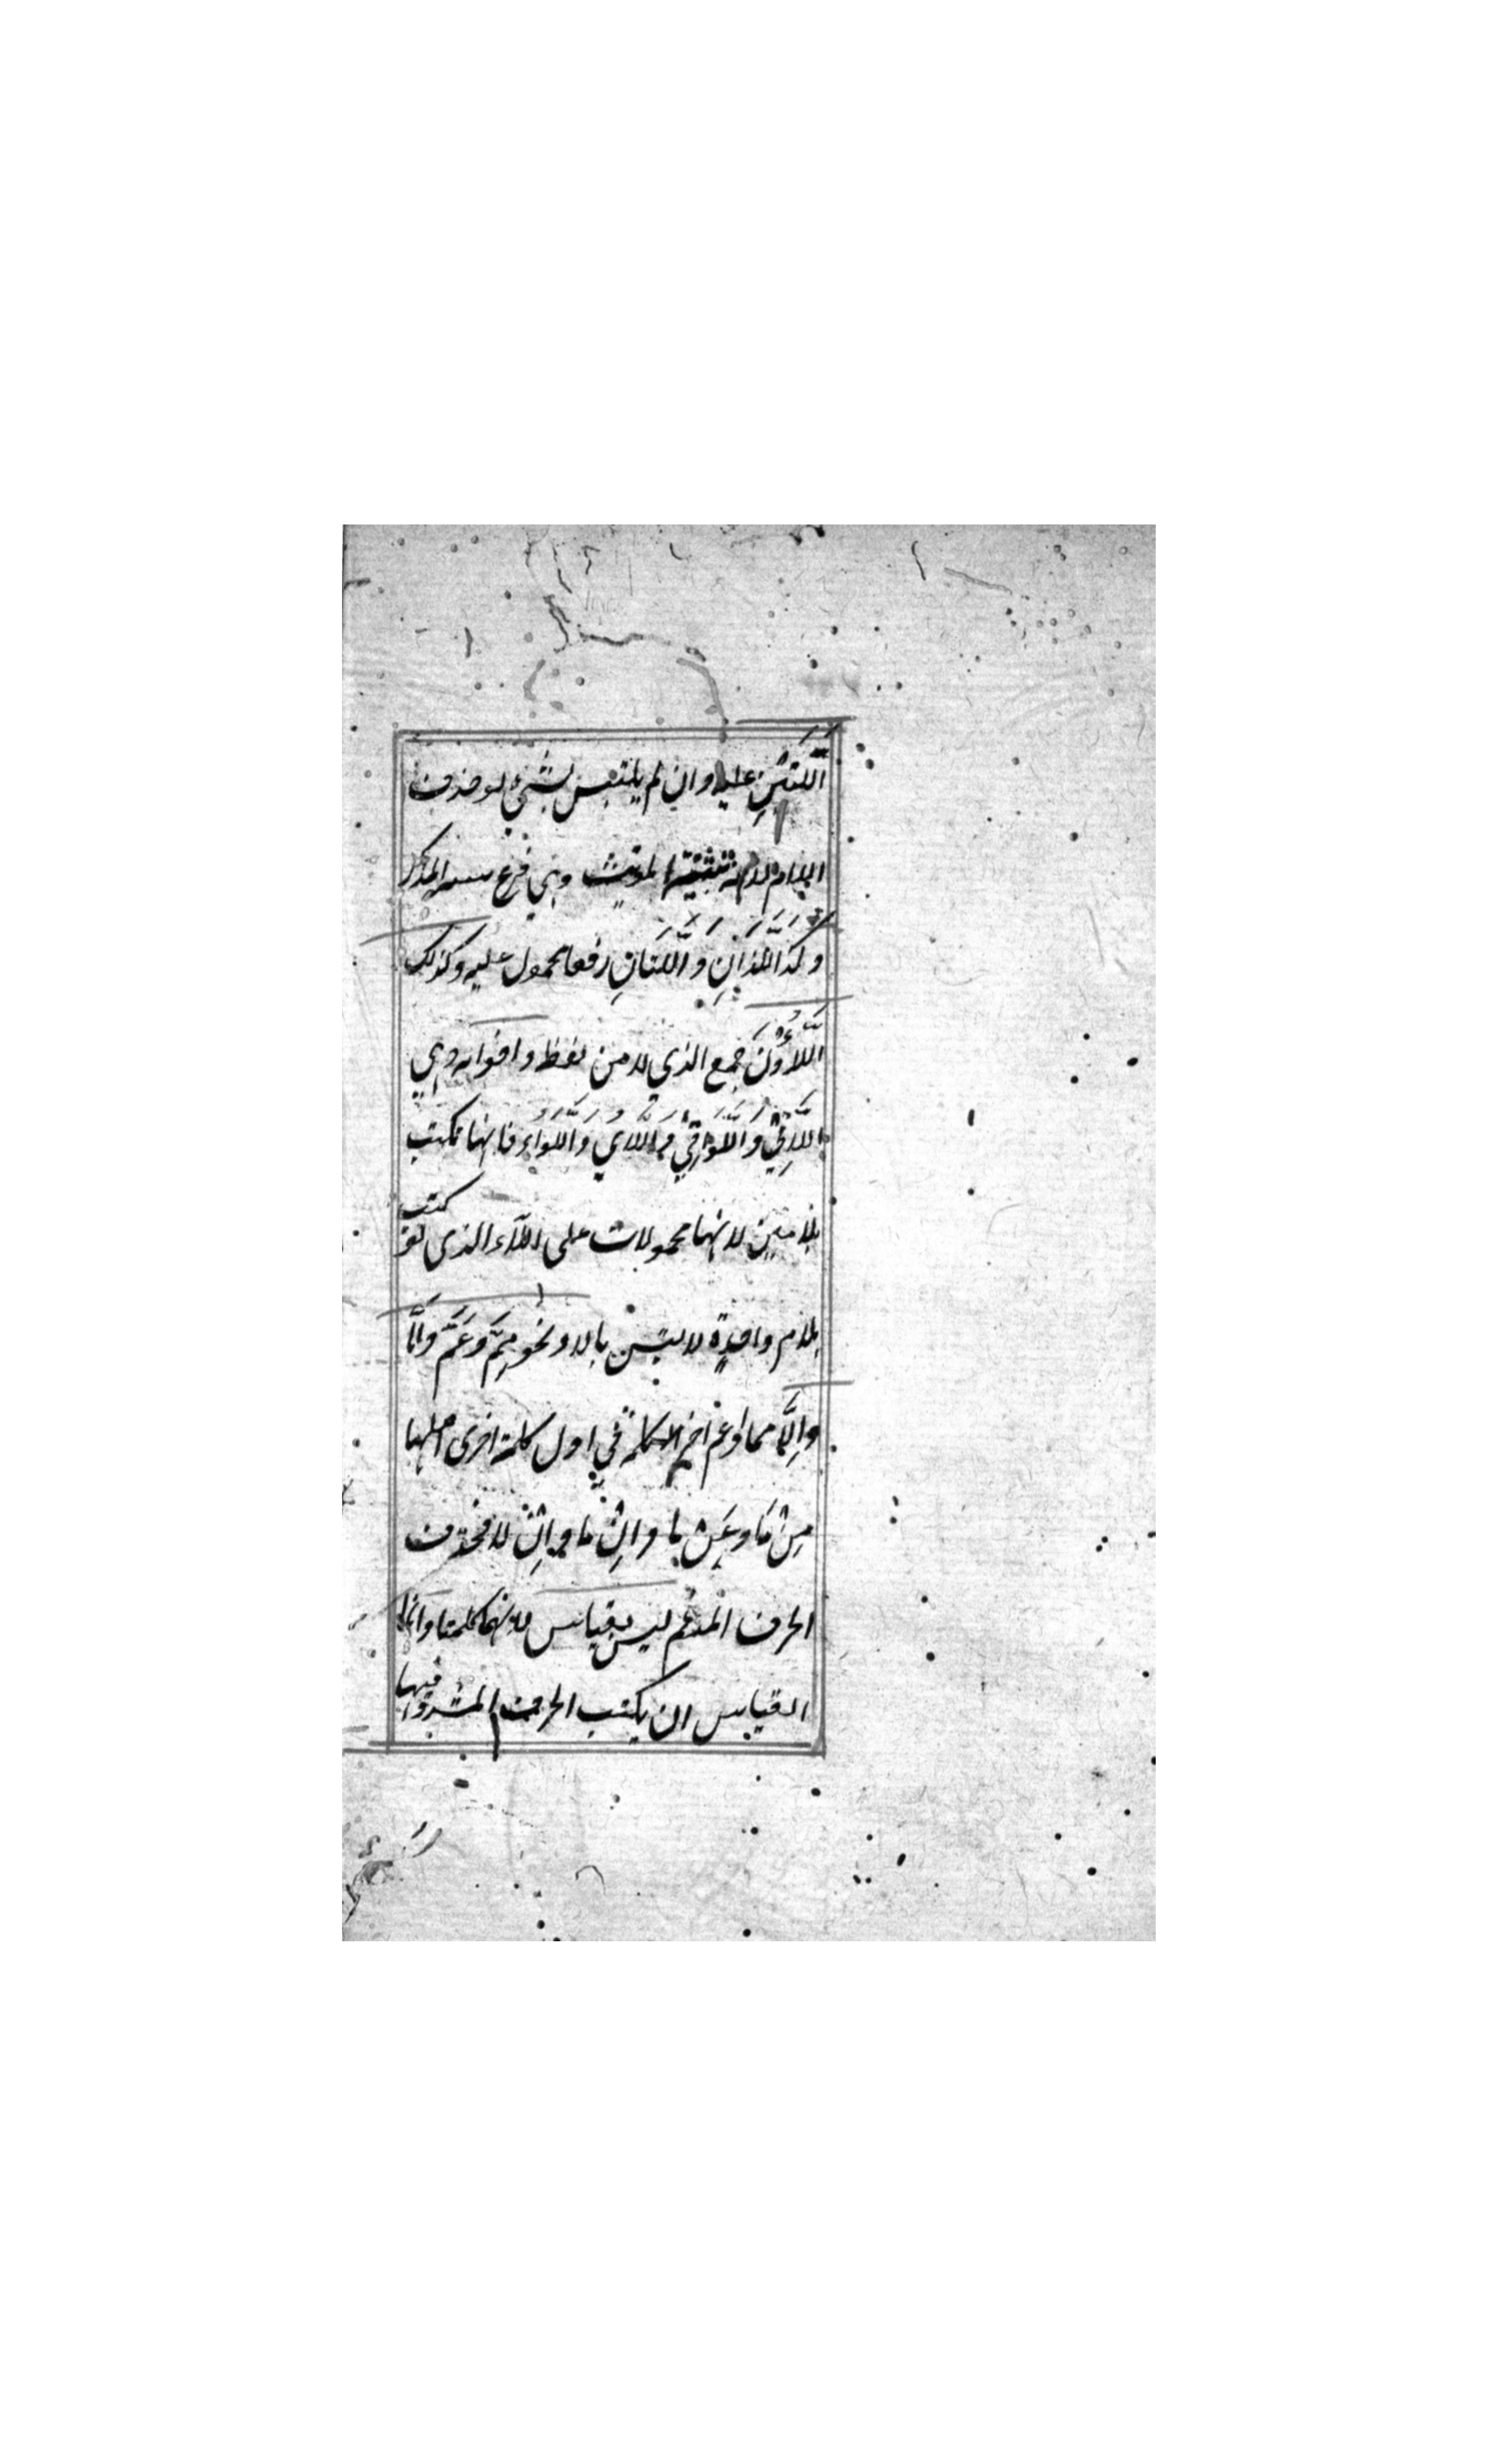 اَلَّلتَيْنِ عليه وان لم يلتبس بشيء لو حذف
اللام لانه تثنية المؤنث وهي فرع المذكر
وَكَذَا اللَّذَانِ وَاَللَّتَانِ رفعا محمول عليه وكذلك
اَللَّاؤُنَ جمع الذي لا من لفظه واخواته وهي
اَللَّاتِيْ وَاَللَّوَاتِيْ وَاَللَّائِيْ وَاَللَّوَاءِ فانها تكتب
بلامين لانها محمولات على اللآء الذي لو كتب
بلام واحدة لالتبس بالا ونحو مِمَّ وَعَمَّ وَاِمَّا
وَاِلَّا مما ادغم اخر الكلمة في اول كلمة اخرى اصلها
مِنْ مَا وعَنْ ما واِنْ ما واِنْ لا فحذف
الحرف المدغم ليس بقياس لانهما كلمتا وانما
القياس ان يكتب الحرف المشدد فيها